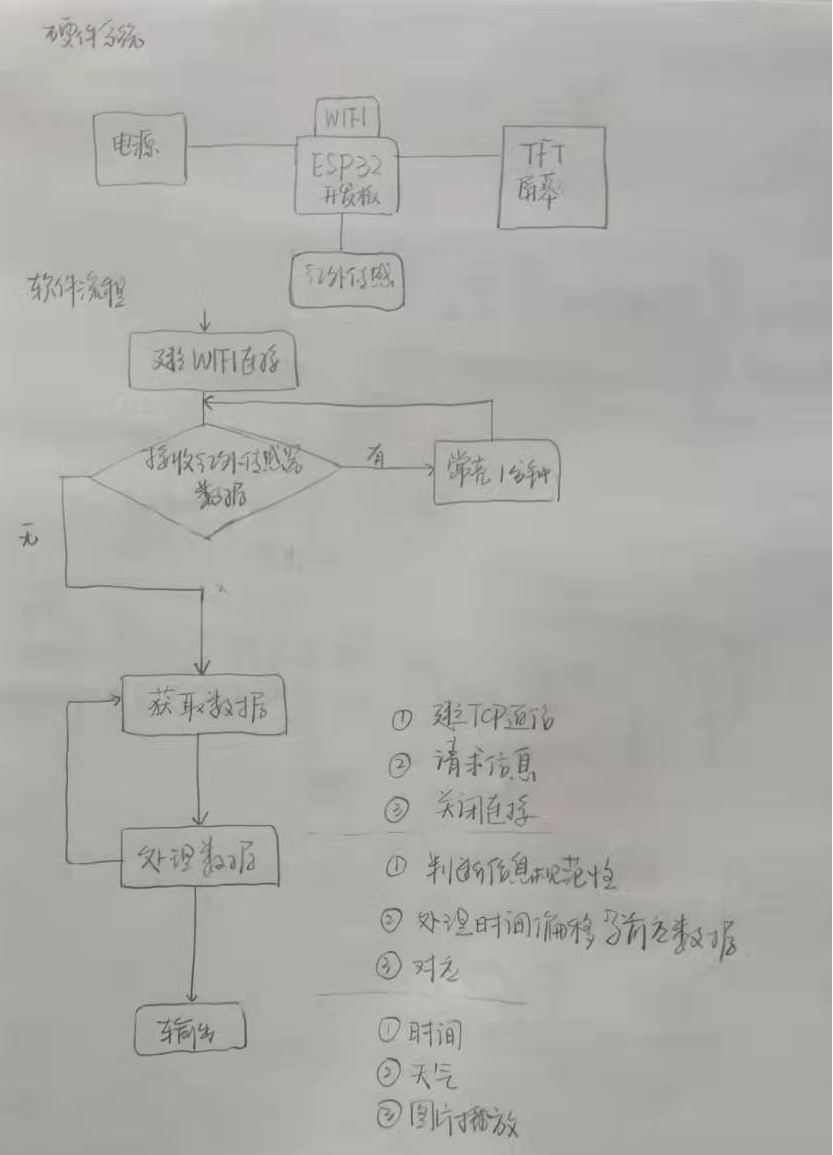 硬件系统
电源
WIFI
ESP32
开发板
TFT
屏幕
红外传感
软件流程
建立WIFI连接
接收红外传感器
数据
有
常亮1分钟
无
获取数据
① 建立TCP通信
② 请求信息
③ 关闭连接
处理数据
① 判断信息规范性
② 处理时间偏移与前之数据
③ 对之
输出
① 时间
② 天气
③ 图片播放